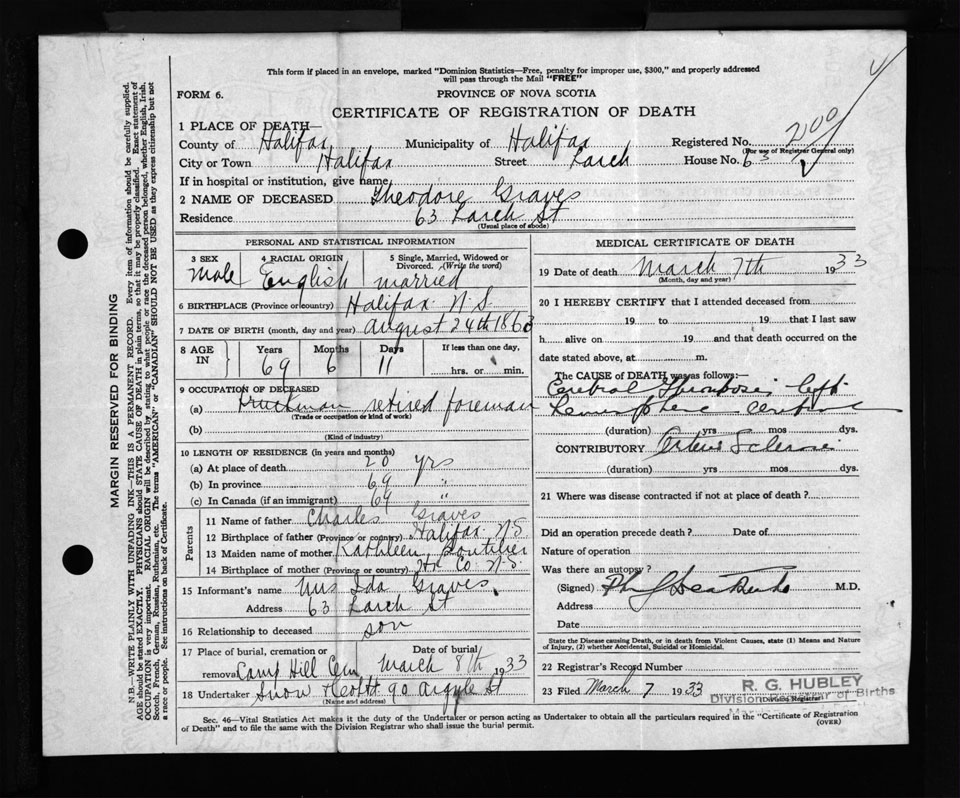 This form if placed in an envelope, marked "Dominion Statistics—Free, penalty for improper use, $300," and properly addressed
will pass through the Mail "FREE"
FORM 6.
PROVINCE OF NOVA SCOTIA
CERTIFICATE OF REGISTRATION OF DEATH
1 PLACE OF DEATH—
County of Halifax Municipality of Halifax Registered No. 200
(For use of Registrar General only)
City or Town Halifax Street Larch House No. 63
If in hospital or institution, give name
2 NAME OF DECEASED Theodore Graves
Residence 63 Larch St
(Usual place of abode)
PERSONAL AND STATISTICAL INFORMATION
3 SEX 4 RACIAL ORIGIN 5 Single, Married, Widowed or
Divorced. (Write the word)
Male English married
6 BIRTHPLACE (Province or country) Halifax N.S.
7 DATE OF BIRTH (month, day and year) August 24th 1863
8 AGE IN Years Months Days If less than one day,
69 6 11 hrs. or min.
9 OCCUPATION OF DECEASED
(a) Truckman retired foreman
(Trade or occupation or kind of work)
(b)
(Kind of industry)
10 LENGTH OF RESIDENCE (in years and months)
(a) At place of death 20 yrs
(b) In province 69 "
(c) In Canada (if an immigrant) 69 "
Parents
11 Name of father Charles Graves
12 Birthplace of father (Province or country) Halifax N.S.
13 Maiden name of mother Kathleen Boutilier
14 Birthplace of mother (Province or country) Hx Co. N.S.
15 Informant's name Mrs Ida Graves
Address 63 Larch St
16 Relationship to deceased son
17 Place of burial, cremation or Date of burial
removal Camp Hill Cem March 8th 1933
18 Undertaker Snow & Co Ltd 90 Argyle St
(Name and address)
MEDICAL CERTIFICATE OF DEATH
19 Date of death March 7th 1933
(Month, day and year)
20 I HEREBY CERTIFY that I attended deceased from
19 to 19 that I last saw
h alive on 19 and that death occurred on the
date stated above, at m.
The CAUSE of DEATH was as follows:—
Cerebral Thrombosis left
hemisphere cerebrum
(duration) yrs mos dys.
CONTRIBUTORY Arterio Sclerosis
(duration) yrs mos dys.
21 Where was disease contracted if not at place of death?
Did an operation precede death? Date of
Nature of operation
Was there an autopsy?
(Signed) M.D.
Address
Date
State the Disease causing Death, or in death from Violent Causes, state (1) Means and Nature
of Injury, (2) whether Accidental, Suicidal or Homicidal.
22 Registrar's Record Number
23 Filed March 7 1933
R. G. HUBLEY
Division Registrar of Births
Division Registrar
Sec. 46—Vital Statistics Act makes it the duty of the Undertaker or person acting as Undertaker to obtain all the particulars required in the "Certificate of Registration
of Death" and to file the same with the Division Registrar who shall issue the burial permit.
(OVER)
MARGIN RESERVED FOR BINDING
N.B.—WRITE PLAINLY WITH UNFADING INK—THIS IS A PERMANENT RECORD. Every item of information should be carefully supplied.
AGE should be stated EXACTLY. PHYSICIANS should STATE CAUSE OF DEATH in plain terms, so that it may be properly classified. Exact statement of
OCCUPATION is very important. RACIAL ORIGIN will be described by stating to what people or race the deceased person belonged, whether English, Irish,
Scotch, French, German, Russian, Ruthenian, etc. The terms "AMERICAN" or "CANADIAN" SHOULD NOT BE USED as they express citizenship but not
a race or people. See instructions on back of Certificate.